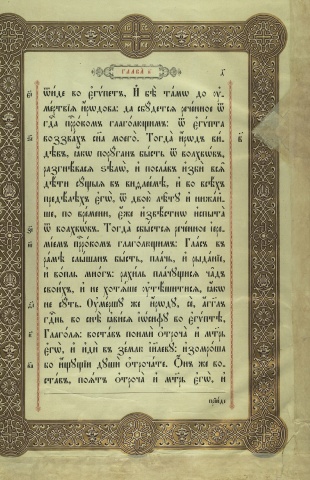 ГЛАВА в҃
ѿи́де во є҆гѵ́петъ. И҆ бѣ̀ та́мѡ до ᲂу҆-
ме́ртвїѧ и҆́рѡдова: да сбꙋ́детсѧ рече́нное ѿ
гд҇а прⷪ҇ро́комъ глаго́лющимъ: ѿ є҆гѵ́пта
воззва́хъ сн҃а моего̀. Тогда̀ и҆́рѡдъ ви́-
дѣвъ, ꙗ҆́кѡ порꙋ́ганъ бы́сть ѿ волхвѡ́въ,
разгнѣ́васѧ ѕѣлѡ̀, и҆ посла́въ и҆збѝ всѧ̑
дѣ́ти сꙋ́щыѧ въ виѳлее́мѣ, и҆ во всѣ́хъ
предѣ́лѣхъ є҆гѡ̀, ѿ двою̀ лѣ́тꙋ и҆ нижа́й-
ше, по вре́мени, є҆́же и҆звѣ́стнѡ и҆спыта̀
ѿ волхвѡ́въ. Тогда̀ сбы́стсѧ рече́нное і҆ере-
мі́емъ прⷪ҇ро́комъ глаго́лющимъ: Гла́съ въ
ра́мѣ слы́шанъ бы́сть, пла́чь, и҆ рыда́нїе,
и҆ во́пль мно́гъ: рахи́ль пла́чꙋщисѧ ча̑дъ
свои́хъ, и҆ не хотѧ́ше ᲂу҆тѣ́шитисѧ, ꙗ҆́кѡ
не сꙋ́ть. Оу҆ме́ршꙋ же и҆́рѡдꙋ, сѐ, а҆́гг҃лъ
гд҇нь во снѣ̀ ꙗ҆ви́сѧ і҆ѡ́сифꙋ во є҆гѵ́птѣ,
Глаго́лѧ: воста́въ поимѝ ѻ҆троча̀ и҆ мт҃рь
є҆гѡ̀, и҆ и҆дѝ въ зе́млю і҆и҃левꙋ: и҆зомро́ша
бо и҆́щꙋщїи дꙋшѝ ѻ҆троча́те. Ѻ҆́нъ же во-
ста́въ, поѧ́тъ ѻ҆троча̀ и҆ мт҃рь є҆гѡ̀, и҆
прїи́де